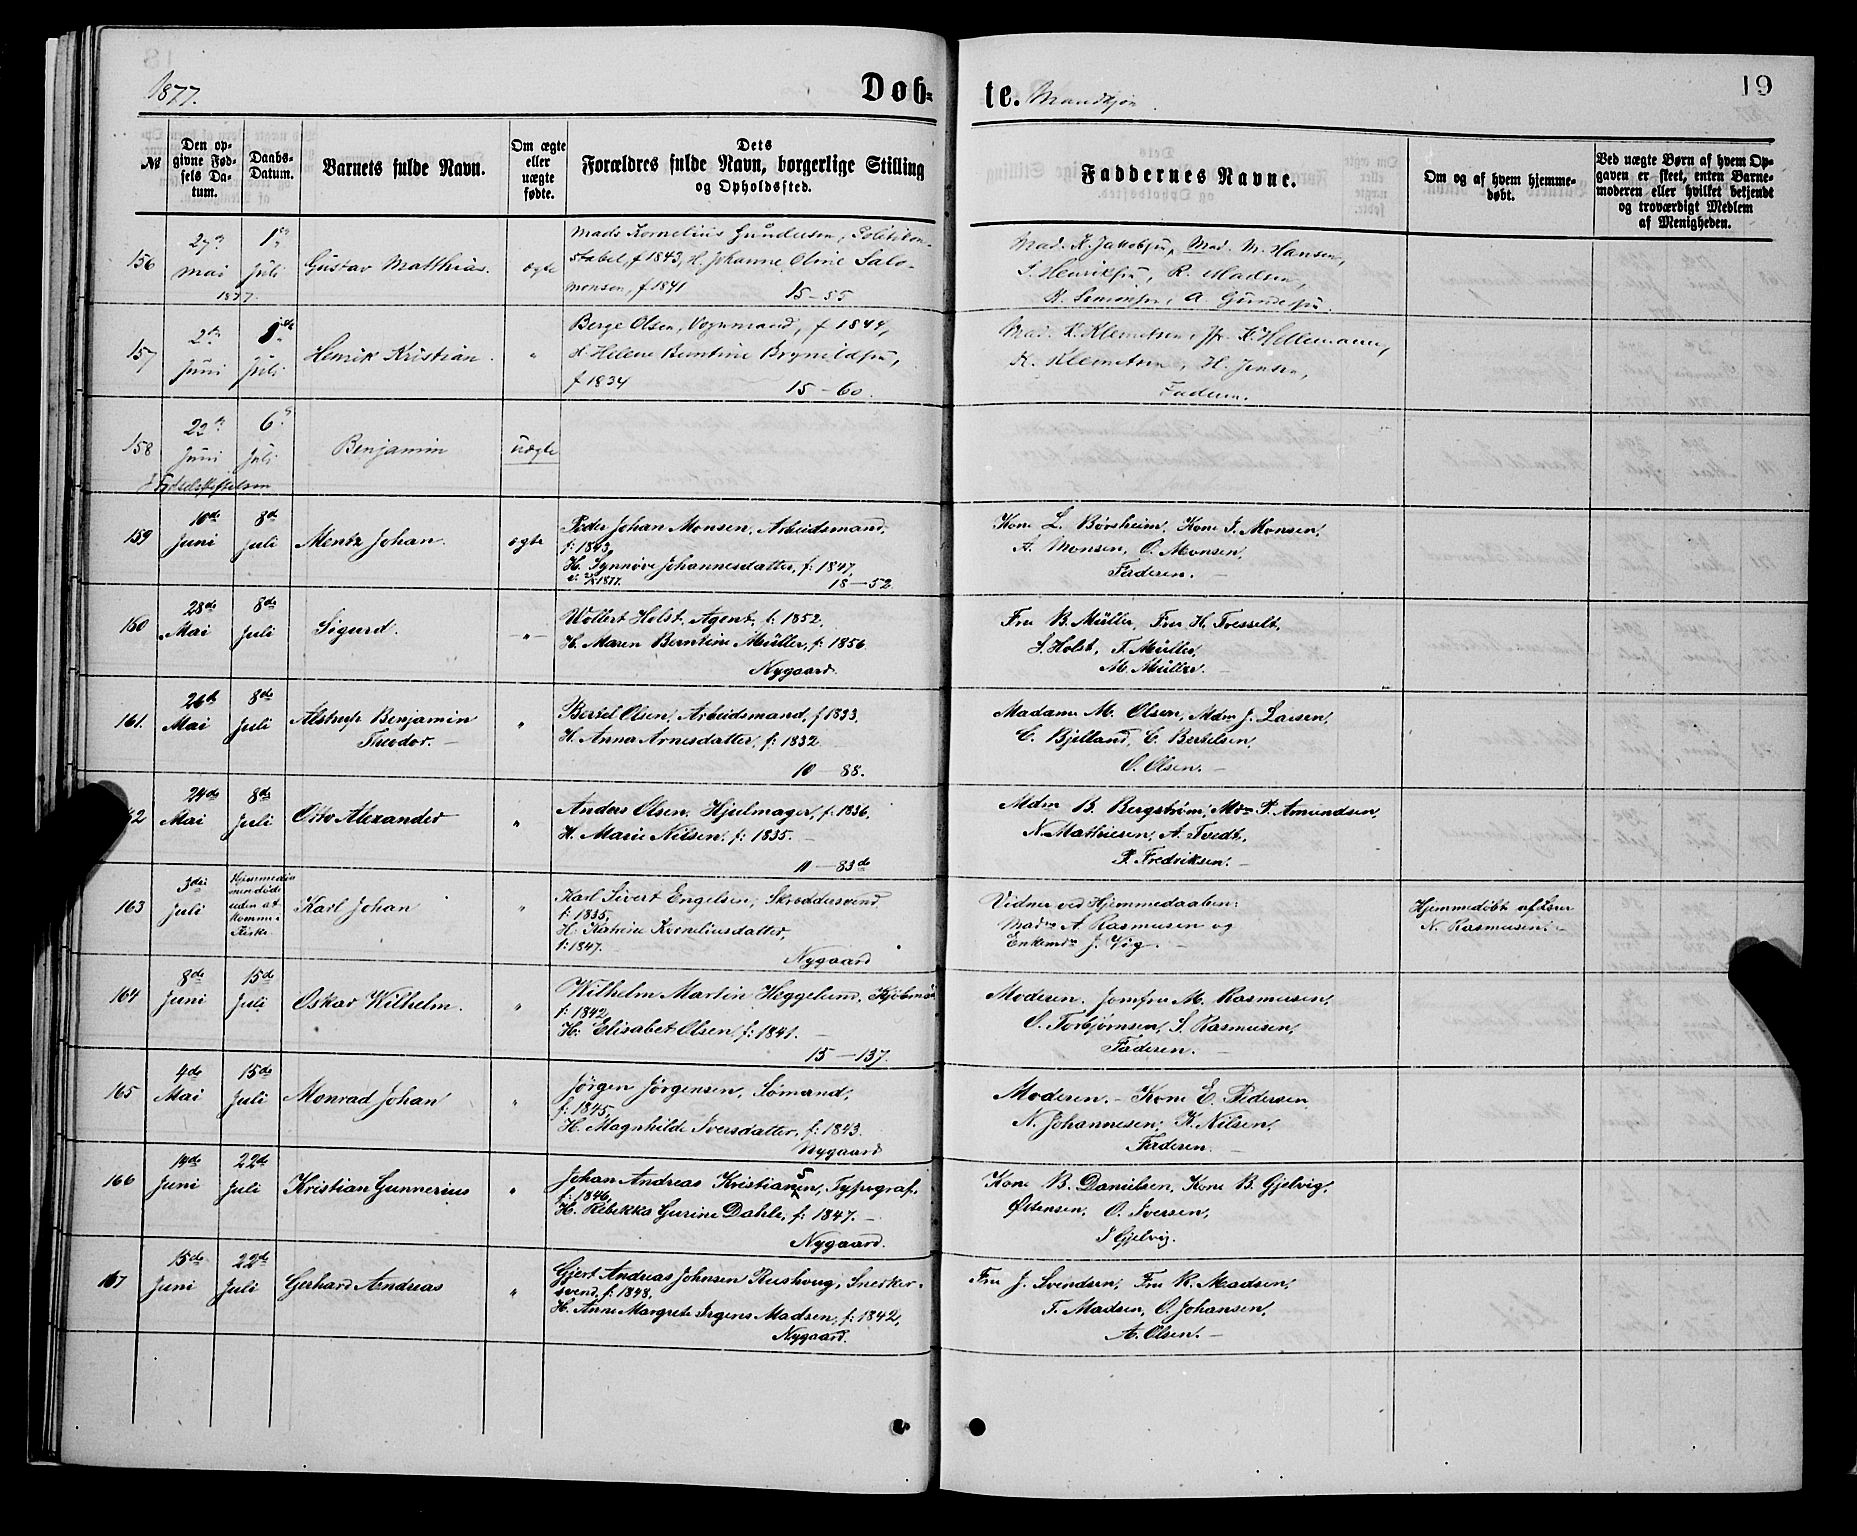 1877.
Døb-
te. Mandkjøn
19
№
Den op-
givne Fød-
sels Da-
tum.
Daabs-
Datum.
Barnets fulde Navn.
Om ægte
eller
uægte
fødte.
Dets
Forældres fulde Navn, borgerlige Stilling
og Opholdssted.
Faddernes Navne.
Om og af hvem hjemme-
døbt.
Ved uægte Børn af hvem Op-
gaven er skeet, enten Barne-
moderen eller hvilket bekjendt
og troværdigt Medlem
af Menigheden.
156
27de Mai 1877.
1ste Juli
Gustav Matthias.
ægte
Mads Kornelius Gundersen, Politikon-
stabel, f 1843, H. Johanne Oline Salo-
monsen, f 1841
15-55
Mad. K. Jakobsen, Mad. M. Hansen,
S. Henriksen, R. Madsen,
K. Simonsen, A. Gundersen.
157
2den Juni
1ste Juli
Henrik Kristian.
"
Berge Olsen, Vognmand, f 1844,
H. Helene Berntine Brynildsen,
f 1834
15-60.
Mad. K. Klemetsen, Fr. K. Hellemann,
K. Klemetsen, H. Jensen,
Faderen.
158
22de Juni
6te Juli
Benjamin
uægte
I Fødselsstiftelsen
159
10de Juni
8de Juli
Mentz Johan.
ægte
Peder Johan Monsen, Arbeidsmand,
f: 1843,
H. Synnøve Johannesdatter, f: 1847,
1877.
18-52
Kone L. Børsheim, Kone J. Monsen,
A. Monsen, O. Monsen,
Faderen.
160
28de Mai
8de Juli
Sigurd.
"
Wollert Holst, Agent, f: 1852,
H. Maren Berntine Müller, f: 1856.
Nygaard.
Fru B. Müller, Fru H. Tresselt,
S. Holst, F. Müller,
M. Müller.
161.
26de Mai
8de Juli
Alstrup Benjamin
Theodor.
"
Bertel Olsen, Arbeidsmand, f 1833.
H. Anna Arnesdatter, f: 1832
10-88.
Madame M. Olsen, Mdm J. Larsen,
C. Bjelland, C. Bertelsen,
O. Olsen.
62
24de Mai
8de Juli
Otto Alexander
"
Anders Olsen, Hjulmager, f: 1836,
H. Marie Nilsen, f: 1835.
11-83de
Mdm B. Bergstrøm, Mdm P. Amundsen,
N. Mathiesen, A. Tvedt,
P. Fredriksen.
163
3die Juli
uden at
komme i
Kirke
Karl Johan
"
Karl Sivert Engelsen, Skræddersvend
f: 1835,
H. Katrine Korneliusdatter,
f: 1847.
Nygaard
Vidner ved Hjemmedaaben:
Madm A. Rasmusen og
Enkemdm J. Vig.
Hjemmedøbt af Lærer
N. Rasmusen.
164
8de Juni
15de Juli
Oskar Wilhelm.
"
Wilhelm Martin Heggelund, Kjøbm
f: 1842,
H: Elisabet Olsen, f: 1841.
15-137.
Moderen. Jomfru M. Rasmusen,
O. Torbjørnsen, S. Rasmusen,
Faderen.
165
4de Mai
15de Juli
Monrad Johan
"
Jørgen Jørgensen, Sømand,
f: 1845,
H. Magnhilde Iversdatter, f: 1843.
Nygaard
Moderen. - Kone E. Pedersen,
N. Johannesen, K. Nilsen,
Faderen.
166
14de Juni
22de Juli
Kristian Gunnerius
"
Johan Andreas Kristiansen, Typograf,
f: 1846,
H. Rebekka Gurine Dahle, f: 1847.
Nygaard.
Kone B. Danielsen, Kone B. Gjelvig,
Østensen, O. Iversen,
I Gjelvig.
167
15de Juni
22de Juli
Gerhard Andreas
"
Gjert Andreas Johnsen Rushoug, Snedker-
svend, f: 1848,
H. Anne Margrete Irgens Madsen, f: 1842,
Nygaard.
Fru J. Svendsen, Fru R. Madsen,
T. Madsen, O. Johansen,
A. Olsen.